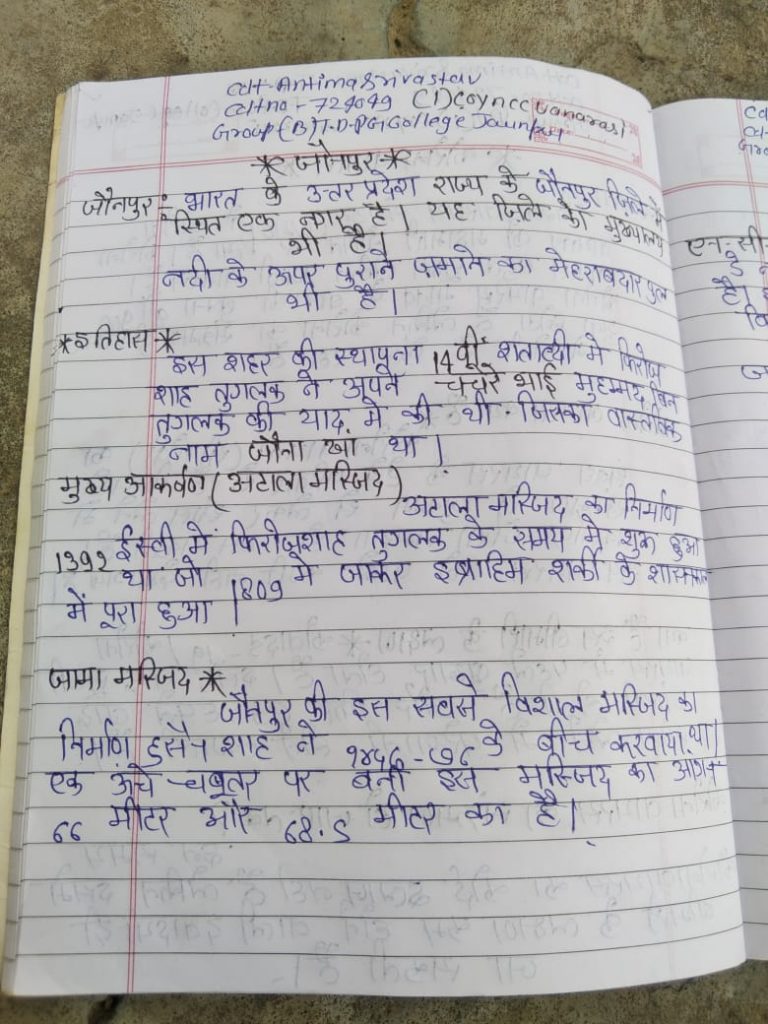 Cdt-Antima Srivastav
Cdt no - 724049 (1) Coy ncc Vanarasi
Group (B) T.D.PG College Jaunpur
* जौनपुर *
जौनपुर : भारत के उत्तर प्रदेश राज्य के जौनपुर ज़िले में
स्थित एक नगर है। यह ज़िले का मुख्यालय
भी है।
नदी के ऊपर पुराने जमाने का मेहराबदार पुल
भी है।
*इतिहास*
इस शहर की स्थापना 14 वीं शताब्दी में फिरोज
शाह तुगलक ने अपने चचेरे भाई मुहम्मद बिन
तुगलक की याद में की थी जिसका वास्तविक
नाम जौना खां था।
मुख्य आकर्वण (अटाला मस्जिद)
अटाला मस्जिद का निर्माण
1392 ईस्वी में फिरोजशाह तुगलक के समय में शुरू हुआ
था जो 1809 में जाकर इब्राहिम शर्की के शासनकाल
में पूरा हुआ।
जामा मस्जिद *
जौनपुर की इस सबसे विशाल मस्जिद का
निर्माण हुसैन शाह ने के बीच करवाया था।
एक ऊंचे चबूतर पर बनी इस मस्जिद का आंगन
66 मीटर और 68.5 मीटर का है।
एन.सी
है।